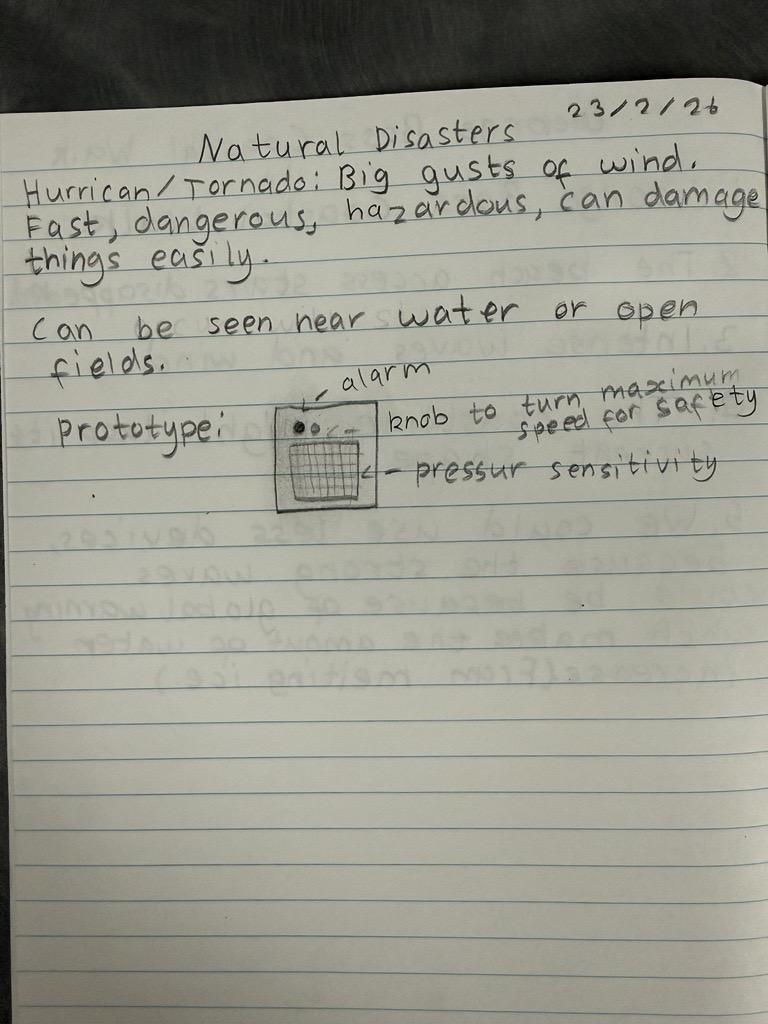 23/2/26
Natural Disasters
Hurrican/Tornado: Big gusts of wind.
Fast, dangerous, hazardous, can damage
things easily.
Can be seen near water or open
fields.
alarm
prototype:
knob to turn maximum
speed for safety
pressur sensitivity